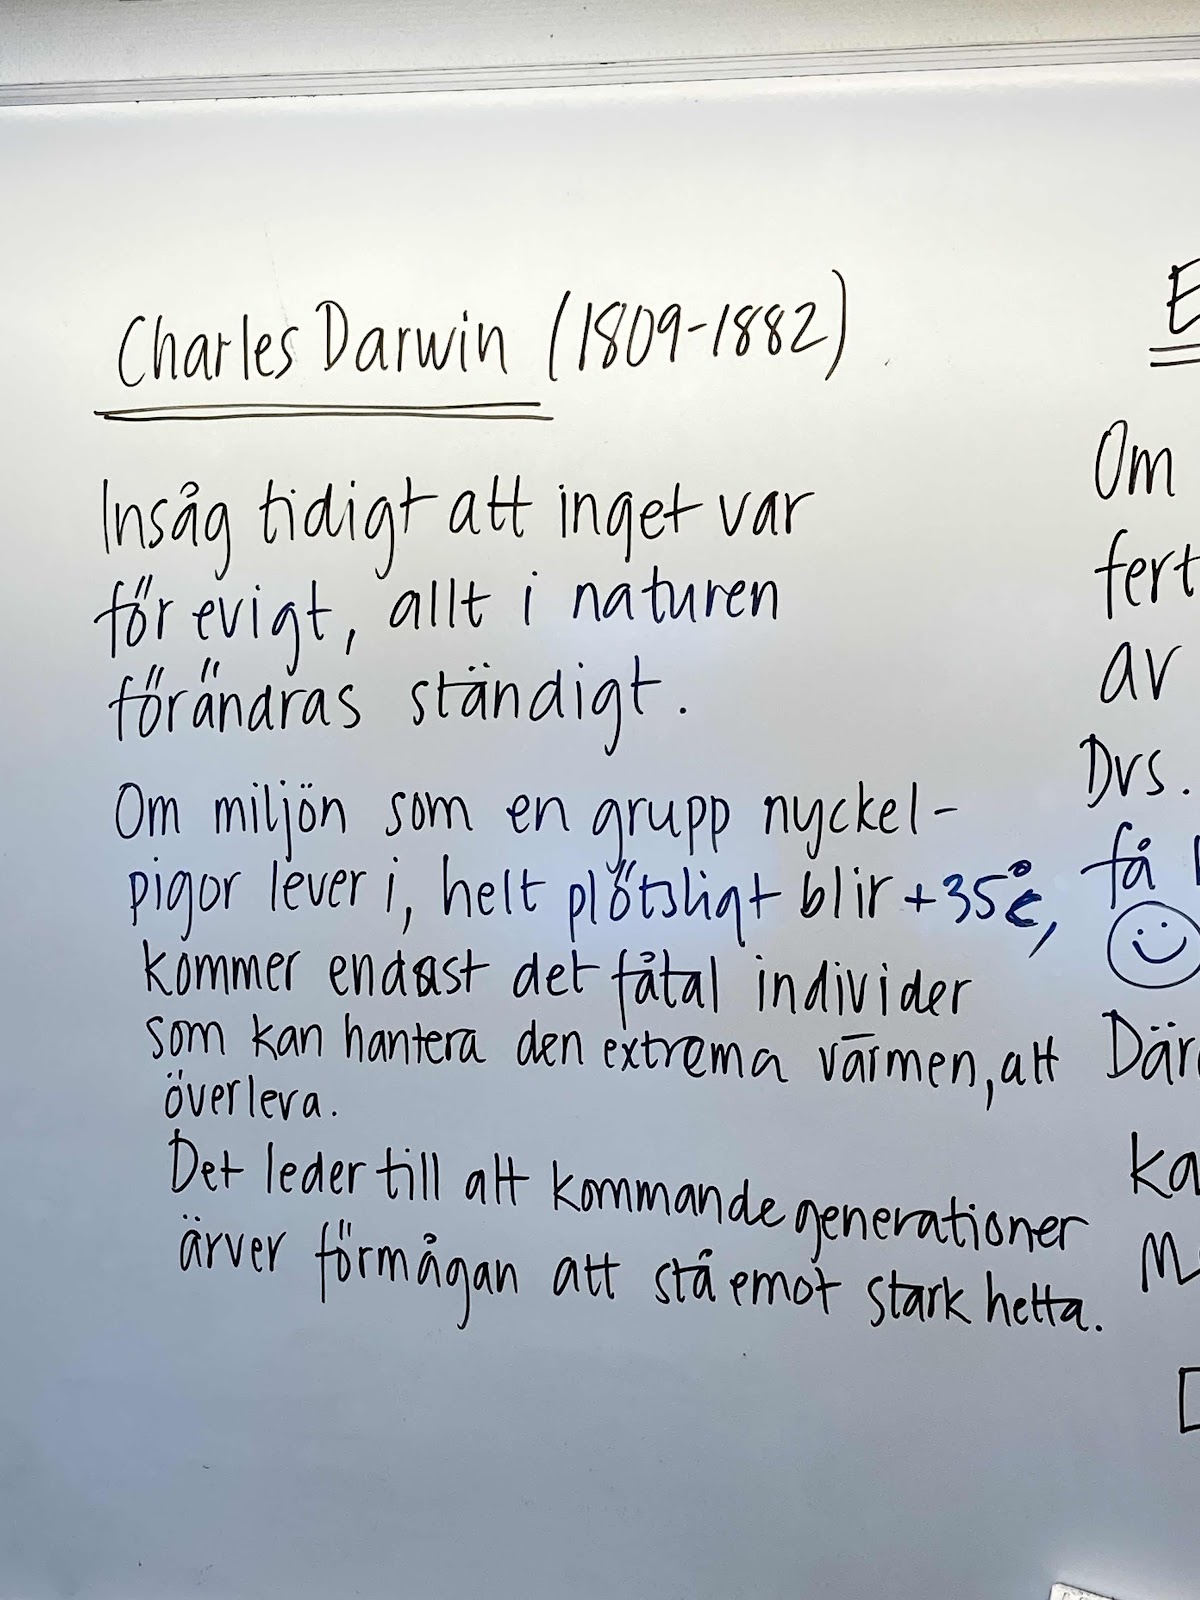 Charles Darwin (1809-1882)
Insåg tidigt att inget var
för evigt, allt i naturen
förändras ständigt.
Om miljön som en grupp nyckel-
pigor lever i, helt plötsligt blir +35°C,
kommer endast det fåtal individer
som kan hantera den extrema värmen, att
överleva.
Det leder till att kommande generationer
ärver förmågan att stå emot stark hetta.
E
Om
fert
av
Dvs.
få
Där
ka